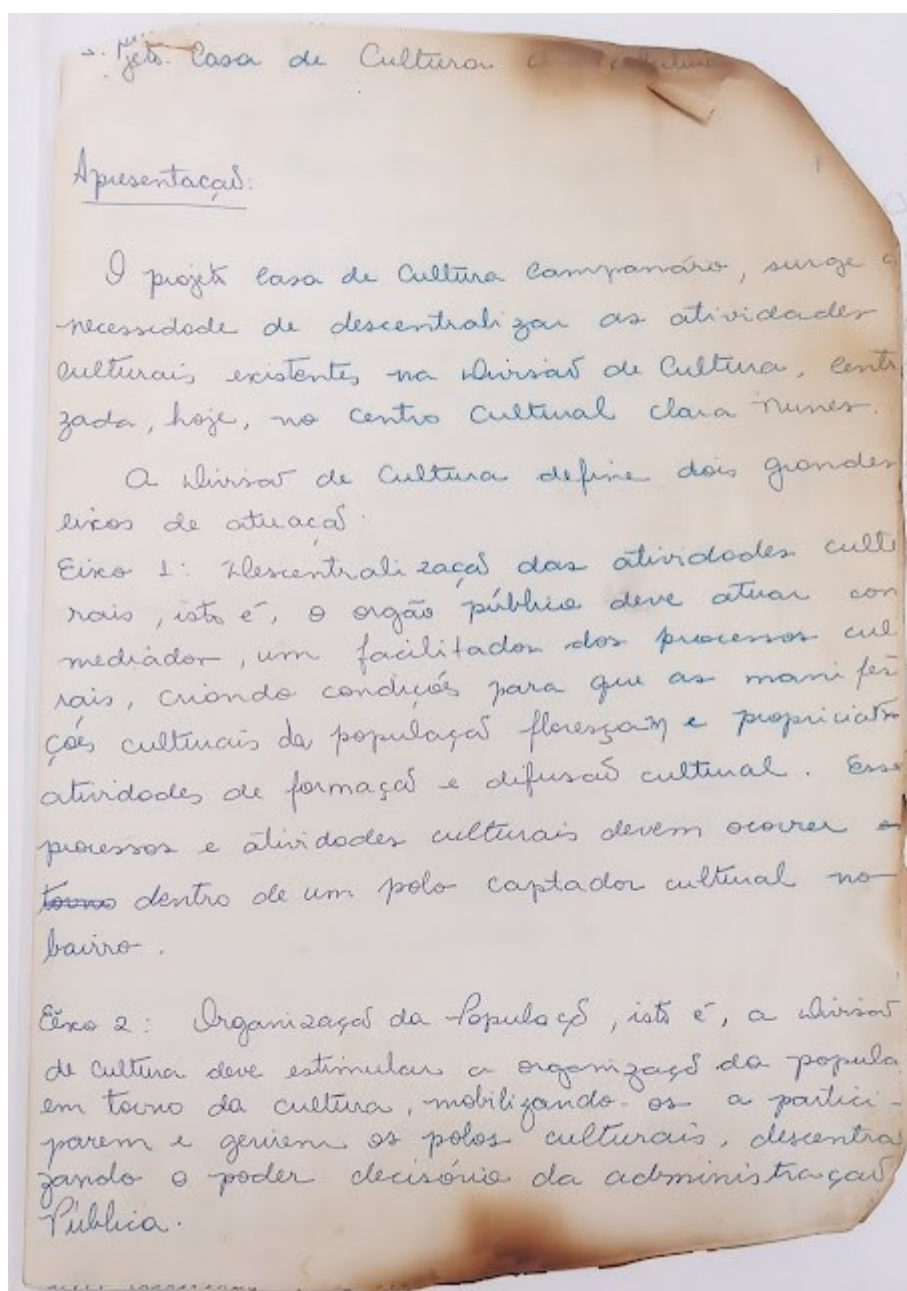 jeto Casa de Cultura
1
Apresentação:
O projeto Casa de Cultura Campanário, surge
necessidade de descentralizar as atividades
culturais existentes na Divisão de Cultura, centr
zada, hoje, no Centro Cultural Clara Nunes.
A Divisão de Cultura define dois grandes
eixos de atuação.
Eixo 1: Descentralização das atividades cultu
rais, isto é, o orgão público deve atuar com
mediador, um facilitador dos processos cul
rais, criando condições para que as manifes
ções culturais da população floresçam e propiciam
atividades de formação e difusão cultural. Esse
processos e atividades culturais devem ocorrer
torno dentro de um polo captador cultural no
bairro.
Eixo 2: Organização da População, isto é, a Divisão
de cultura deve estimular a organização da popula
em torno da cultura, mobilizando-os a partici-
parem e gerirem os polos culturais, descentra
zando o poder decisório da administração
Pública.